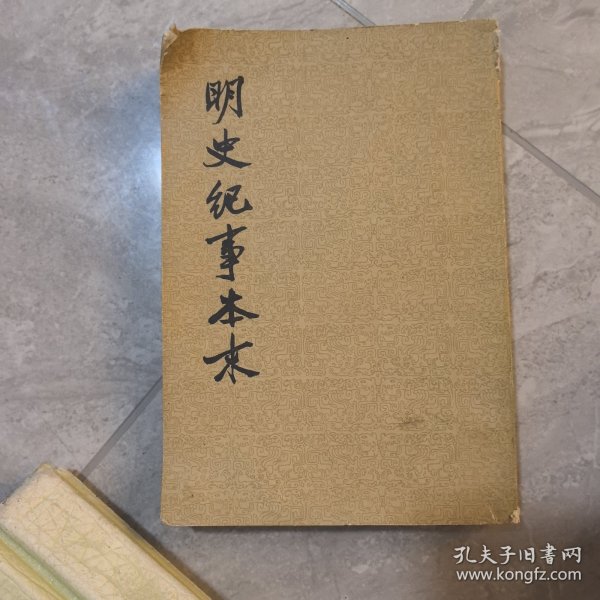 明史纪事本末
孔夫子旧書网
www.kongfz.com